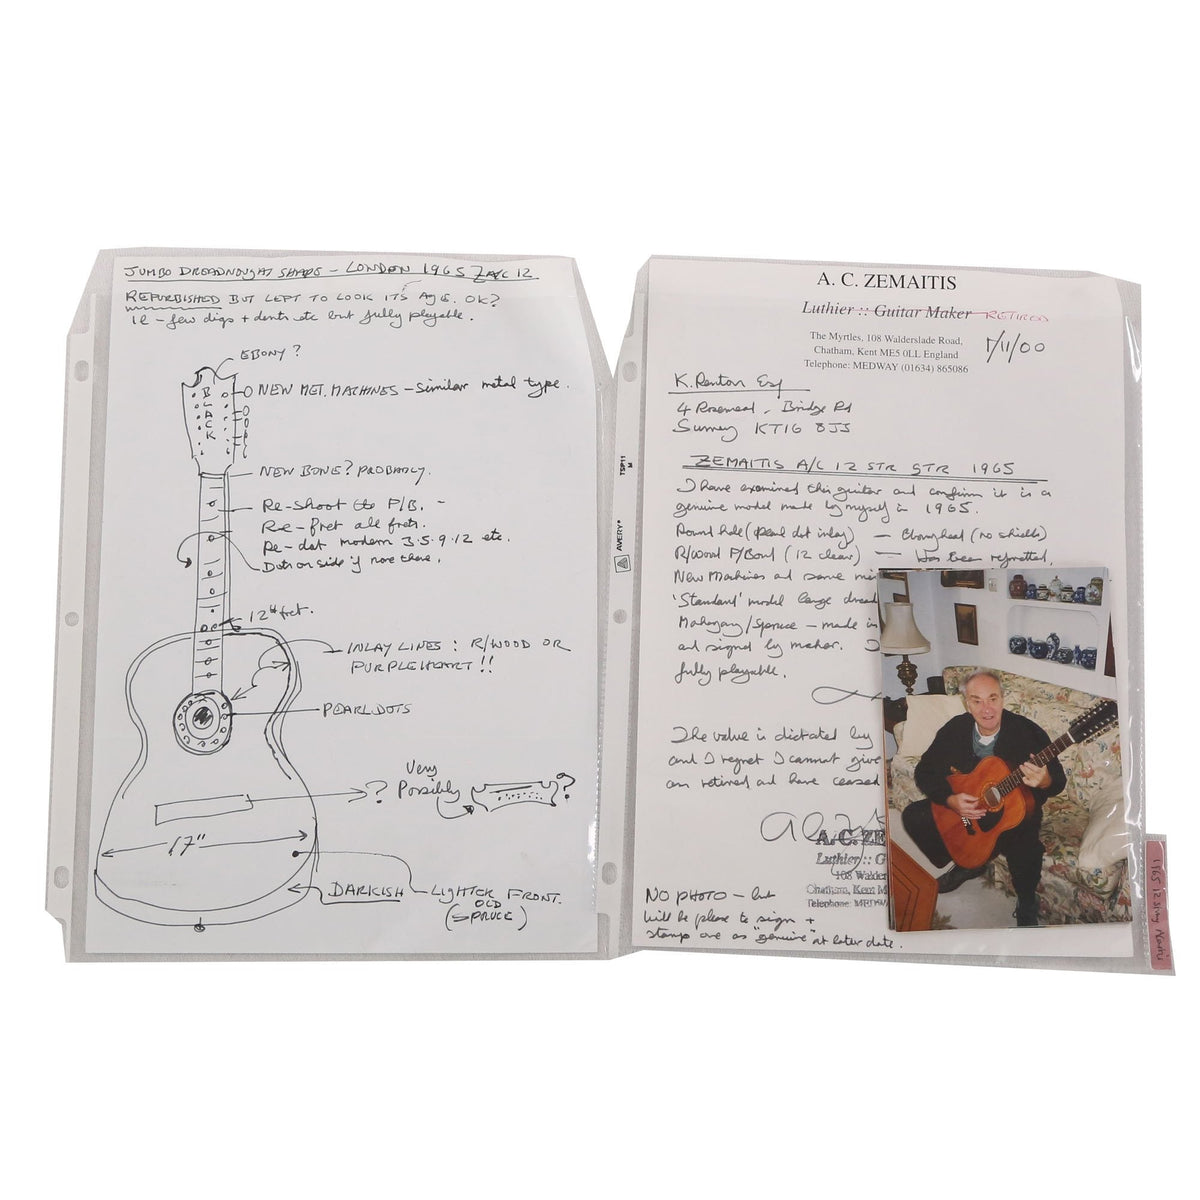 JUMBO DREADNOUGHT SHAPE - LONDON 1965 ZA/C 12
REFURBISHED BUT LEFT TO LOOK ITS AGE. OK?
IE - few digs + dents etc but fully playable.
EBONY?
BLACK
NEW MET. MACHINES - Similar metal type.
NEW BONE? PROBABLY.
Re-shoot the F/B. -
Re-fret all frets.
Re-dot modern 3.5.9.12 etc.
Dots on side if none there.
12th fret.
INLAY LINES: R/WOOD OR
PURPLEHEART!!
PEARL DOTS
? Very
Possibly
?
17"
DARKISH
LIGHTER FRONT.
OLD
(SPRUCE)
AVERY
TSP11
M
A. C. ZEMAITIS
Luthier :: Guitar Maker RETIRED
The Myrtles, 108 Walderslade Road,
Chatham, Kent ME5 0LL England
Telephone: MEDWAY (01634) 865086
/11/00
K. Renton Esq
4 Rosemead, Bridge Rd
Surrey KT16 8JJ
ZEMAITIS A/C 12 STR GTR 1965
I have examined this guitar and confirm it is a
genuine model made by myself in 1965.
Round hole (pearl dot inlay) - Ebony head (no shields)
R/Wood F/Board (12 clear) - Has been refretted,
New Machines and some
'Standard' model large
Mahogany/Spruce - made in
and signed by maker. I
fully playable.
The value is dictated by
and I regret I cannot give
am retired and have ceased
A. C. ZE
Luthier :: G
108 Walder
Chatham, Kent M
Telephone: MEDW
NO PHOTO - but
will be pleased to sign +
stamp one as "genuine" at later date.
1965 12 string